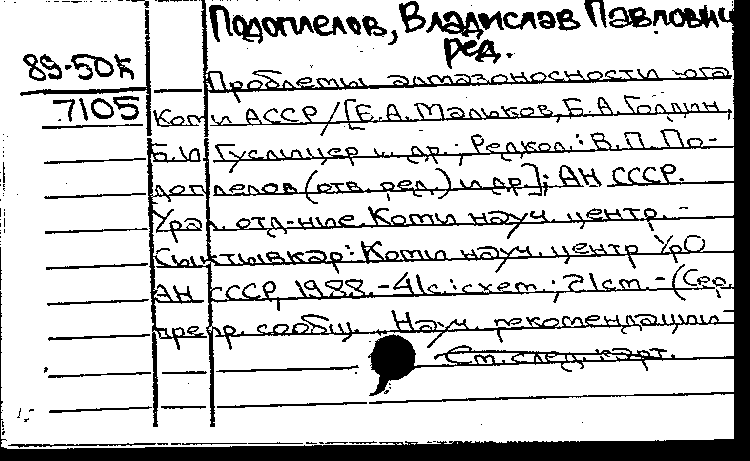 Подоплелов, Владислав Павлович
ред.
89-50к
7105
Проблемы алмазоносности юга
Коми АССР/[Е.А. Мальков, Б.А. Голдин,
Б.И. Гуслицер и др.; Редкол.: В.П. По-
доплелов (отв. ред.) и др.]; АН СССР.
Урал. отд-ние. Коми науч. центр. -
Сыктывкар: Коми науч. центр УрО
АН СССР, 1988. - 41с.: схем.; 21см. - (Сер.
препр. сообщ. „Науч. рекомендации -
См. след. карт.